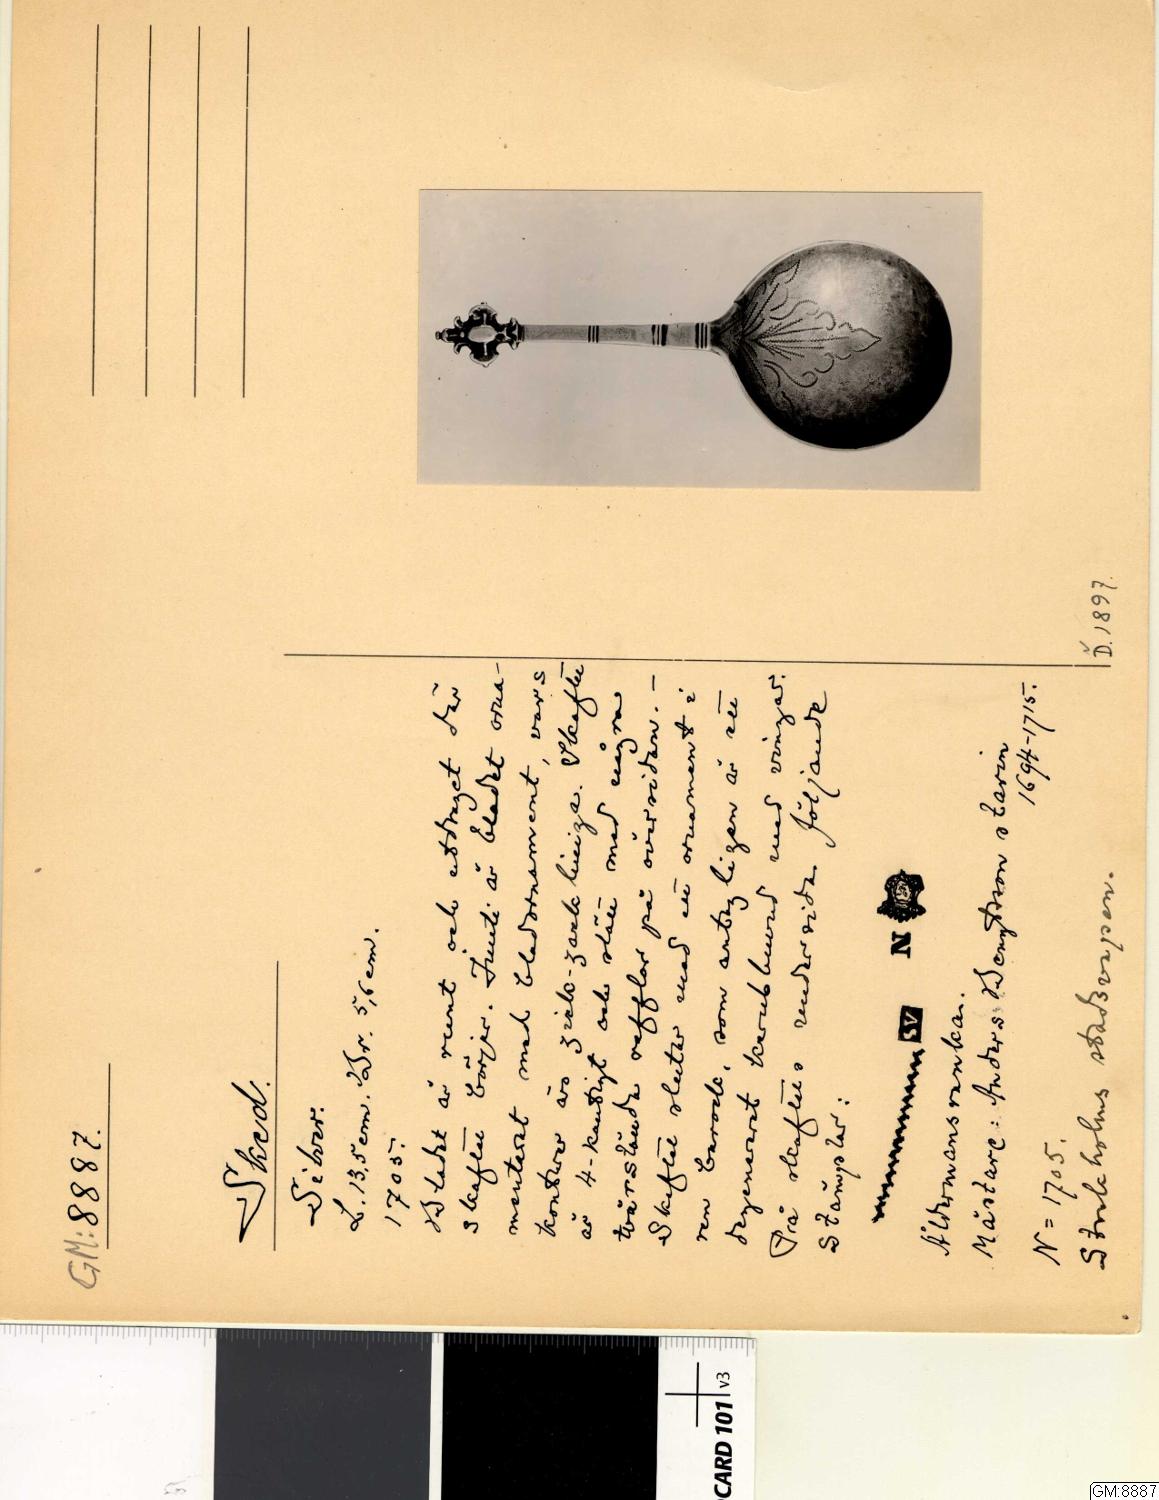 GM:8887.
Sked.
Silver.
L. 13,5 cm. Br. 5,6 cm.
1705.
Bladet är runt och utdraget där
skaftet börjar. Inuti är bladet orna-
menterat med bladornament, vars
konturer äro zick-zack liniga. Skaftet
är 4-kantigt och slätt med några
tvärstående refflor på översidan. –
Skaftet slutar med ett ornament i
ren barock, som antagligen är ett
degenererat kerubhuvud med vingar.
På skaftets undersida följande
Stämplar:
SV N
Åldermansrankan.
Mästare: Anders Bengtson starin
1694-1715.
N = 1705.
Stockholms stadsvapen.
D. 1897.
OCARD 101 v3
GM:8887